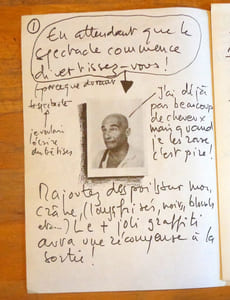 1
En attendant que le
spectacle commence
divertissez-vous!
(parce que durant
le spectacle
je voulais
écrire
des bêtises
J'ai déjà
pas beaucoup
de cheveux
mais quand
je les rase
c'est pire!
Rajoutez des poils sur mon
crâne, (longs frisés, noirs, blonds
etc...) Le + joli graffiti
aura une récompense à la
sortie!